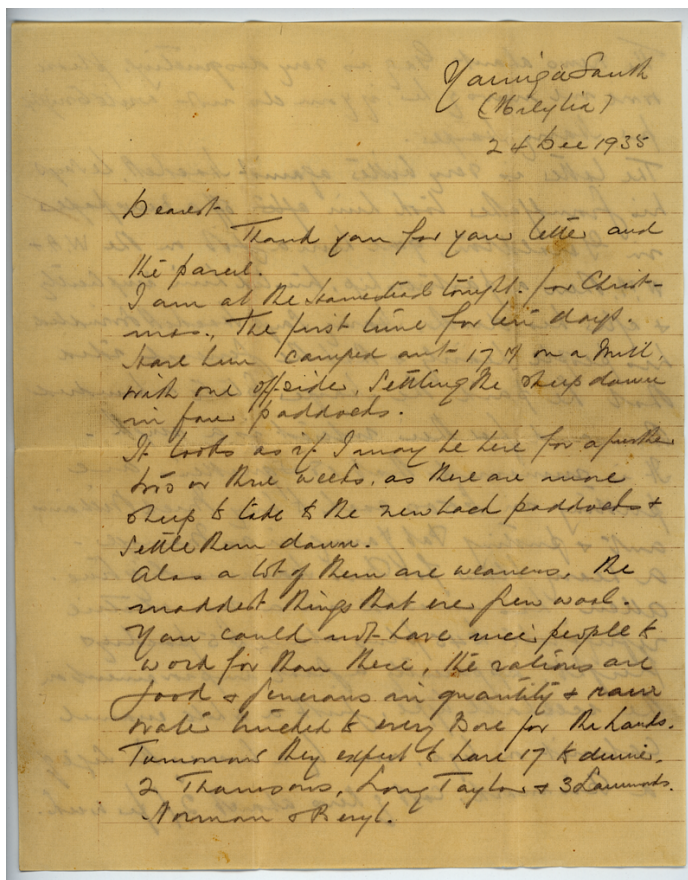 (Nileylia)
24 Dec 1935
Dearest
Thank you for your letter and
the parcel.
I am at the homestead tonight. for Christ-
mas., The first time for ten days.
Have been camped out 17 M on a Mill,
with one offsider, Settling the sheep down
in four paddocks.
It looks as if I may be here for a further
two or three weeks, as there are more
sheep to take to the new back paddocks &
Settle them down.
Alas a lot of them are weaners, the
maddest things that ere grew wool.
You could not have nicer people to
work for than these, the rations are
good & generous in quantity & rain
water trucked to every Bore for the hands.
Tomorrow they expect to have 17 to dinner.
2 Thomsons, Long Taylor & 3
Norman & Beryl.